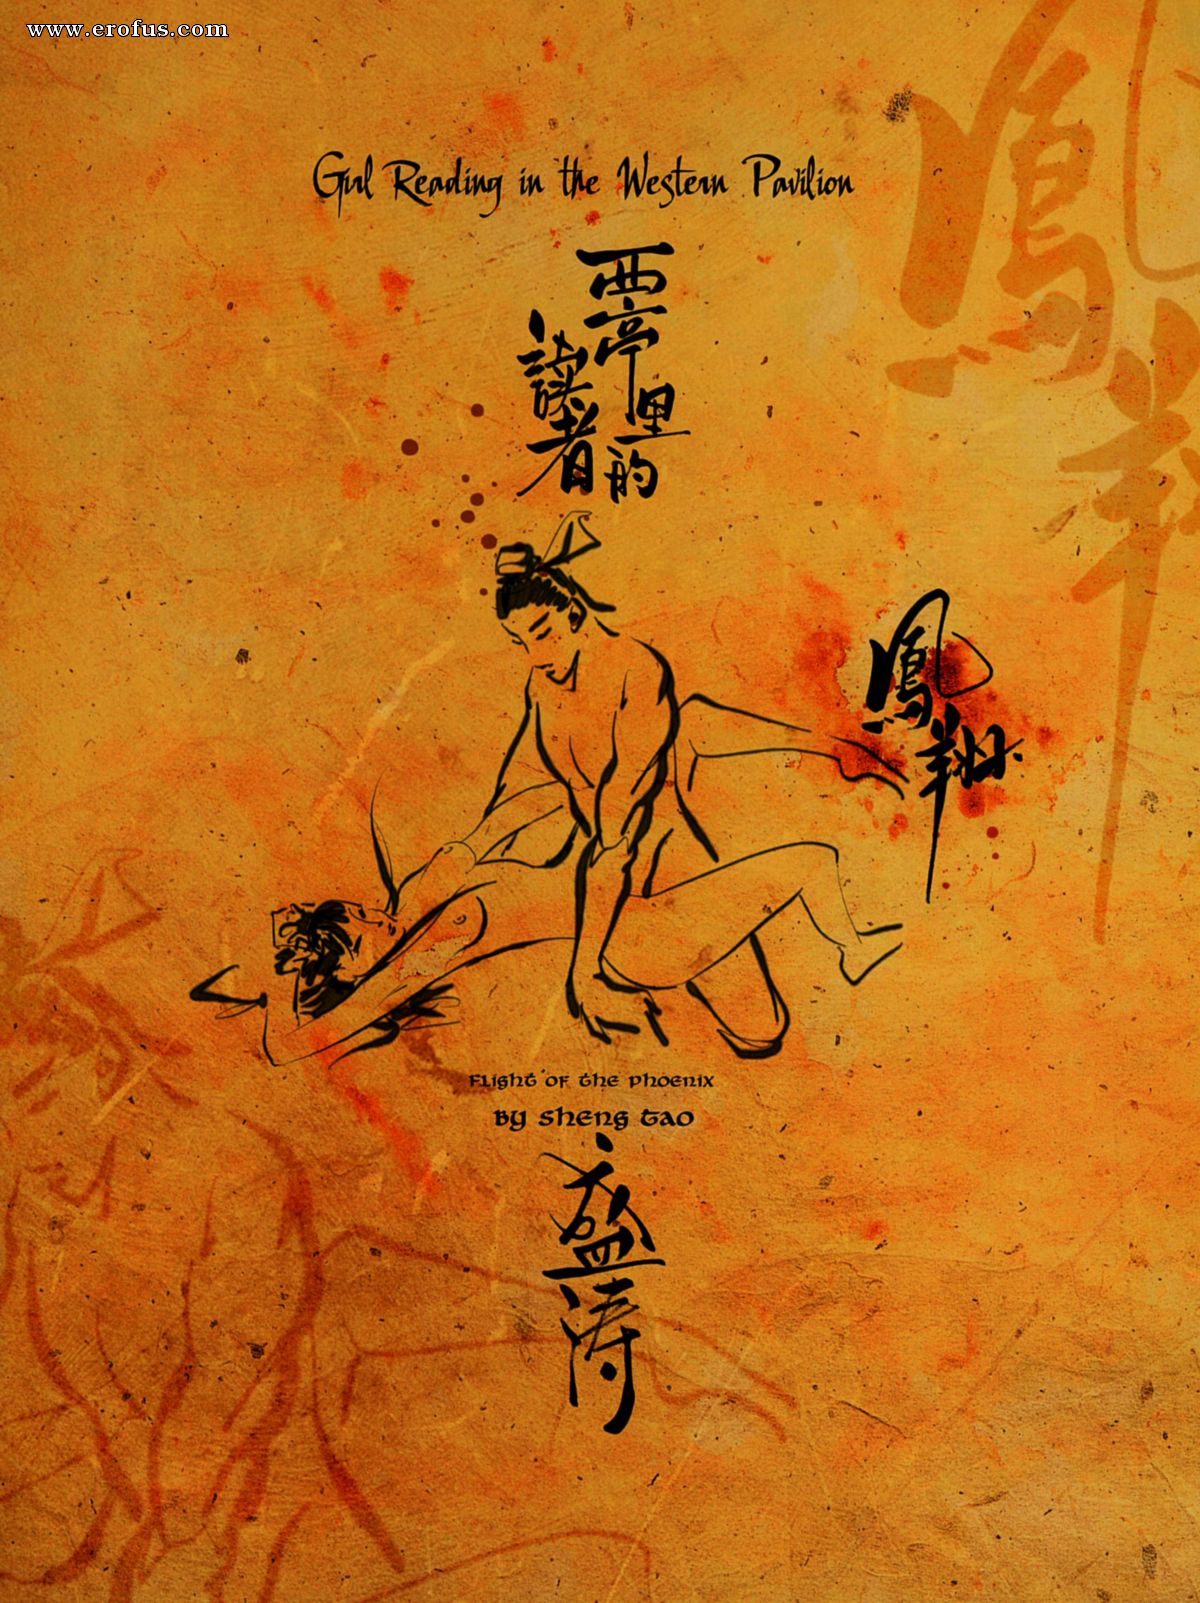 www.erofus.com
Girl Reading in the Western Pavilion
西亭里的
讀者
鳳翔
鳳翔
Flight of the Phoenix
By Sheng Tao
盛涛